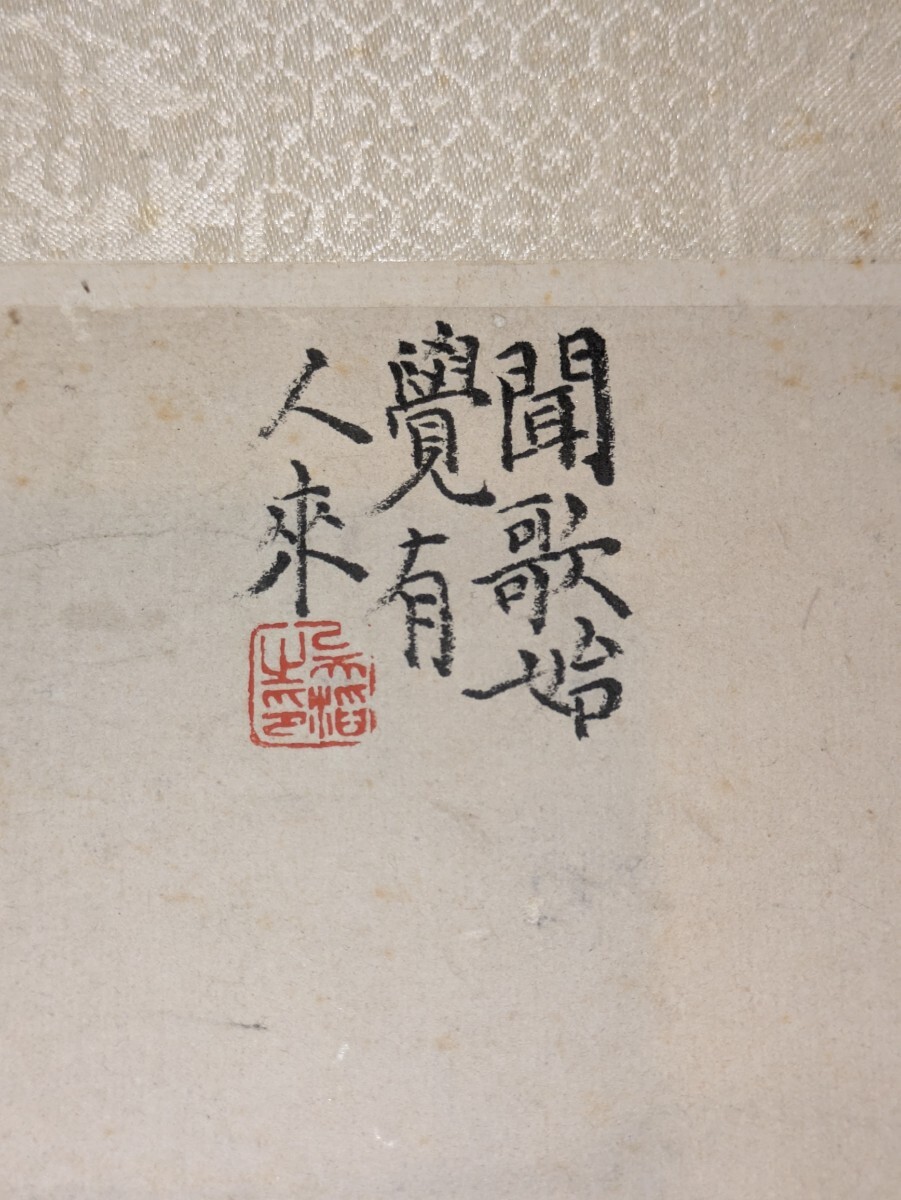 聞歌始
覺有
人來